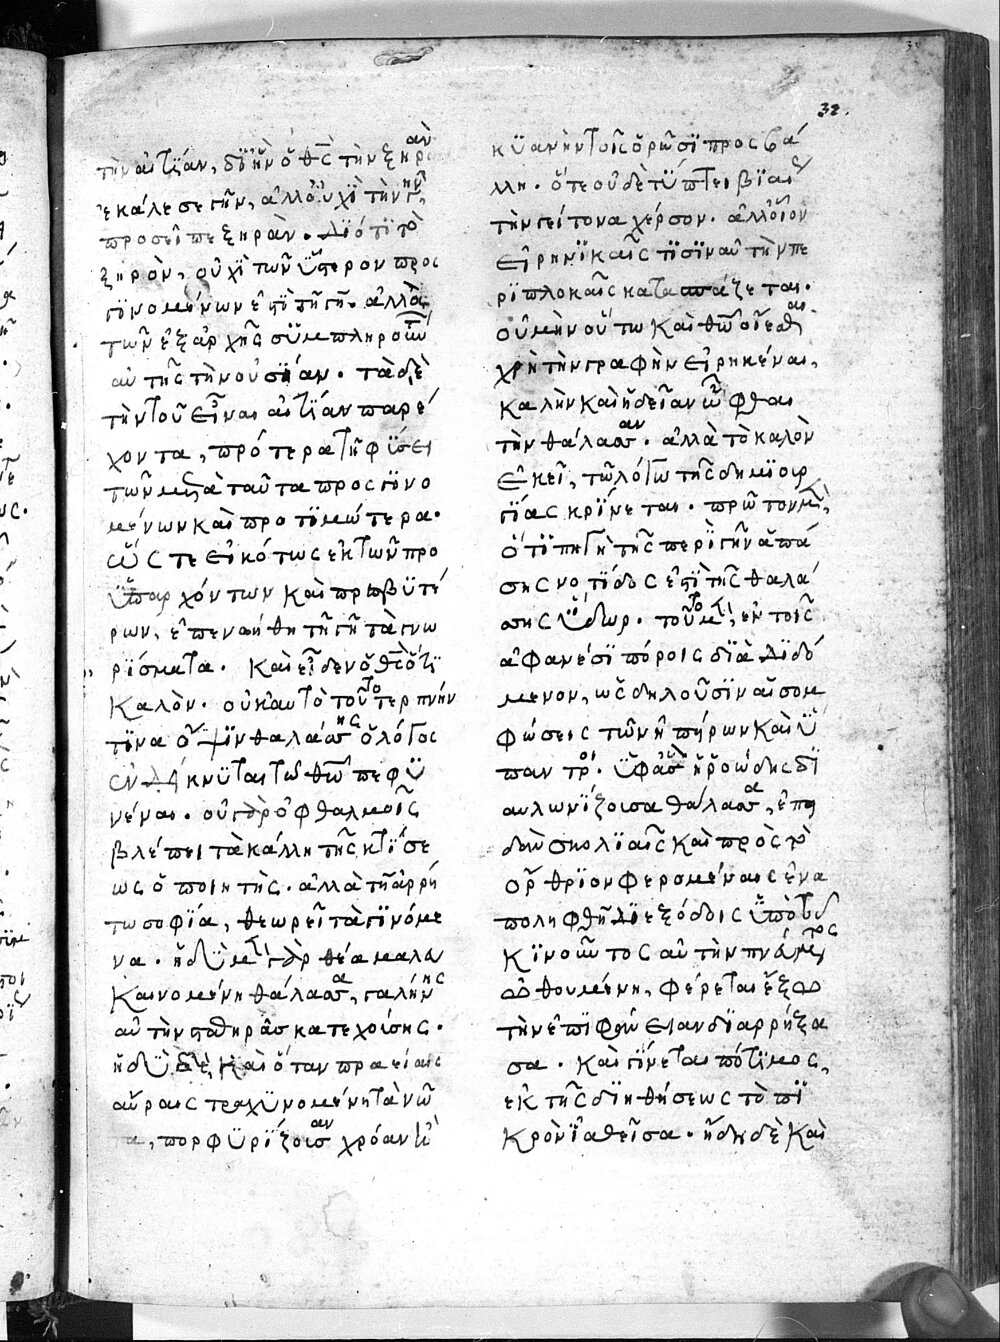 32.
τὴν αἰτίαν, δι ἣν ὁ θς τὴν ξηρὰν
ἐκάλεσε γῆν, ἀλλ οὐχὶ τὴν γῆν
προσεῖπε ξηράν. Διότι τὸ
ξηρὸν, οὐχὶ τῶν ὕστερον προς
γινομένων ἐστὶ τῇ γῇ. ἀλλὰ
τῶν ἐξ ἀρχῆς συμπληρούντων
αὐτῆς τὴν οὐσίαν. τὰ δὲ
τὴν τοῦ εἶναι αἰτίαν παρέ
χοντα, πρότερα τῇ φύσει
τῶν μετὰ ταῦτα προσγινο
μένων καὶ προτιμώτερα.
ὥστε εἰκότως ἐκ τῶν προ
ϋπαρχόντων καὶ πρεσβυτέ
ρων, ἐπενοήθη τῇ γῇ τὰ γνω
ρίσματα. Καὶ εἶδεν ὁ θς ὅτι
καλὸν. οὐκ αὐτὸ τοῦτο τερπνήν
τινα ὄψιν θαλάσσης ὁ λόγος
ἐνδείκνυται τῷ θῶ πεφη
νέναι. οὐ γὰρ ὀφθαλμοῖς
βλέπει τὰ κάλλη τῆς κτίσε
ως ὁ ποιητὴς. ἀλλὰ τῇ ἀρρή
τω σοφία, θεωρεῖ τὰ γινόμε
να. ἡδὺ μὲν γὰρ θέαμα λευ
καινομένη θάλασσα, γαλήνης
αὐτὴν σταθηρᾶς κατεχούσης.
ἡδὺ δὲ καὶ ὅταν πραείαις
αὔραις τραχυνομένη τὰ νῶ
τα, πορφυρίζουσαν χρόαν ἢ
κυανὴν τοῖς ὁρῶσι προσβά
λλη. ὅτε οὐδὲ τύπτει βιαίως
τὴν γείτονα χέρσον. ἀλλ οἷον
εἰρηνικαῖς τισιν αὐτὴν πε
ριπλοκαῖς κατασπάζεται.
οὐ μὴν οὕτω καὶ θῶ οἴεσθαι
χρὴ τὴν γραφὴν εἰρηκέναι,
καλὴν καὶ ἡδεῖαν ὦφθαι
τὴν θάλασσαν. ἀλλὰ τὸ καλὸν
ἐκεῖ, τῷ λόγω τῆς δημιουρ
γίας κρίνεται. πρῶτον μὲν,
ὅτι πηγὴ τῆς περὶ γῆν ἁπά
σης νοτίδος ἐστὶ τῆς θαλά
σσης ὕδωρ. τοῦτο μὲν, ἐν τοῖς
ἀφανέσι πόροις διαδιδό
μενον, ὡς δηλοῦσιν αἱ σομ
φώσεις τῶν ἠπείρων καὶ ὕ
παντροι. ὑφ ἃς ἡ ῥοώδης δι
αυλωνίζουσα θάλασσα, ἐπει
δὰν σκολιαῖς καὶ πρὸς τὸ
ὄρθριον φερομέναις ἐνα
ποληφθῆ διεξόδοις ὑπὸ τοῦ
κινοῦντος αὐτὴν πνεύματος
ὠθουμένη, φέρεται ἔξω
τὴν ἐπιφάνειαν διαρρήξα
σα. καὶ γίνεται πότιμος,
ἐκ τῆς διηθήσεως τὸ πι
κρὸν ἰαθεῖσα. ἤδη δὲ καὶ